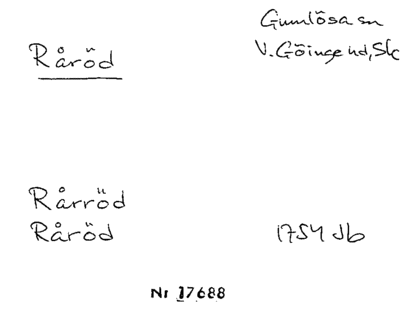 Gumlösa sn
Råröd
V. Göinge hd, Sk
Rårröd
Råröd 1754 Jb
Nr 17688